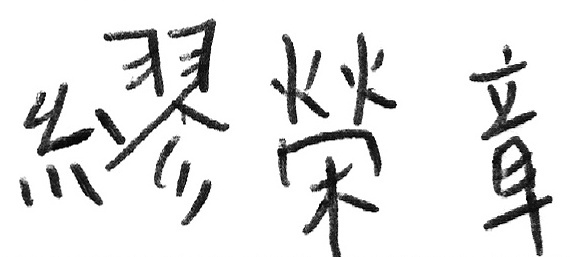 繆榮章